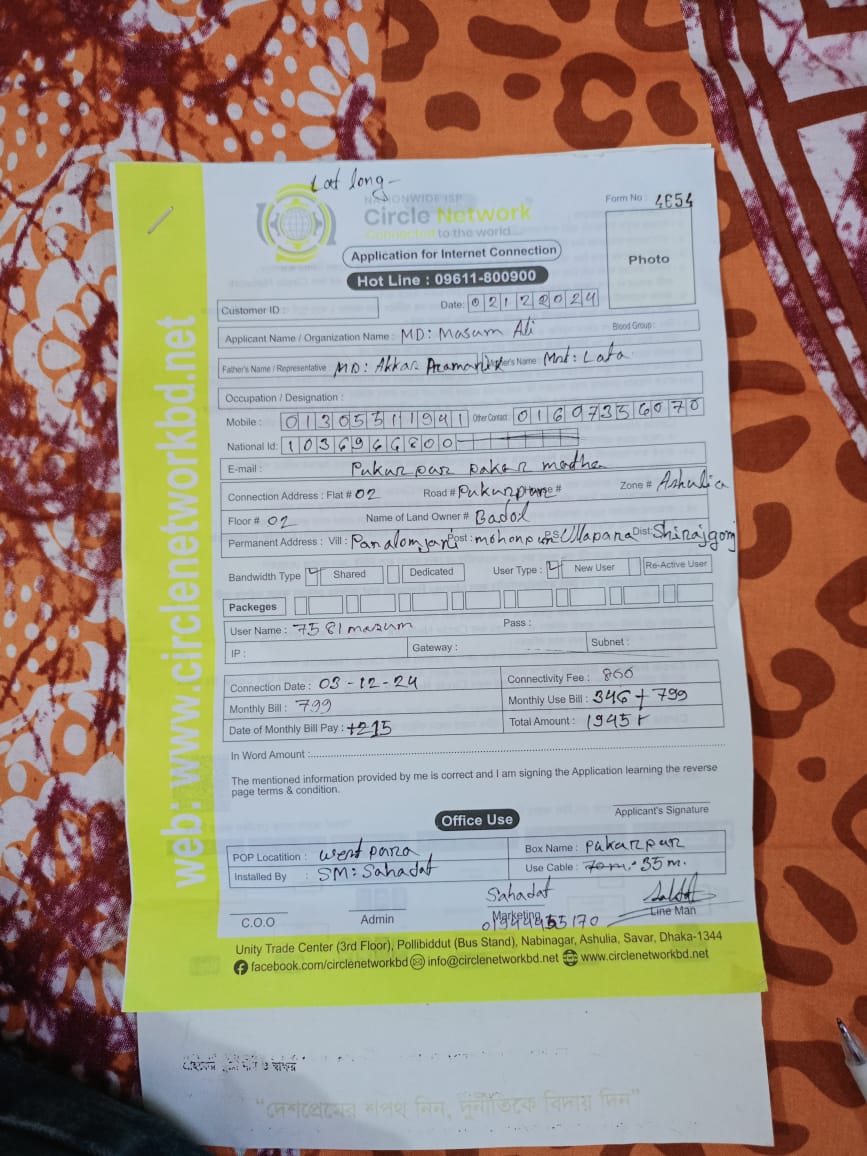 Lat long-
NATIONWIDE ISP
Circle Network
Connected to the world...
Form No : 4654
Application for Internet Connection
Photo
Hot Line : 09611-800900
Customer ID :
Date: 02122024
Applicant Name / Organization Name : MD: Masum Ali Blood Group :
Father's Name / Representative MD: Akkas Pramanik Mother's Name Mnt: Lata
Occupation / Designation :
Mobile : 01305311941 Other Contact 01607356070
National Id: 1036966800
E-mail : Pukur par paker matha
Connection Address : Flat # 02 Road # Pukurpar Zone # Ashulia
Floor # 02 Name of Land Owner # Badol
Permanent Address : Vill : Post : mohonpur PS: Ullapara Dist: Shirajgonj
Bandwidth Type Shared Dedicated User Type : New User Re-Active User
Packeges
User Name : 7581masum Pass :
IP : Gateway : Subnet :
Connection Date : 03-12-24 Connectivity Fee : 800
Monthly Bill : 799 Monthly Use Bill : 346 + 799
Date of Monthly Bill Pay : +215 Total Amount : 1945
In Word Amount :
The mentioned information provided by me is correct and I am signing the Application learning the reverse
page terms & condition.
Applicant's Signature
Office Use
POP Locatition : west para Box Name : Pukurpur
Installed By : SM: Sahadat Use Cable : 35 m.
Sahadat
C.O.O Admin Marketing Line Man
Unity Trade Center (3rd Floor), Pollibiddut (Bus Stand), Nabinagar, Ashulia, Savar, Dhaka-1344
facebook.com/circlenetworkbd info@circlenetworkbd.net www.circlenetworkbd.net
web: www.circlenetworkbd.net
"দেশপ্রেমের শপথ নিন, দুর্নীতিকে বিদায় দিন"